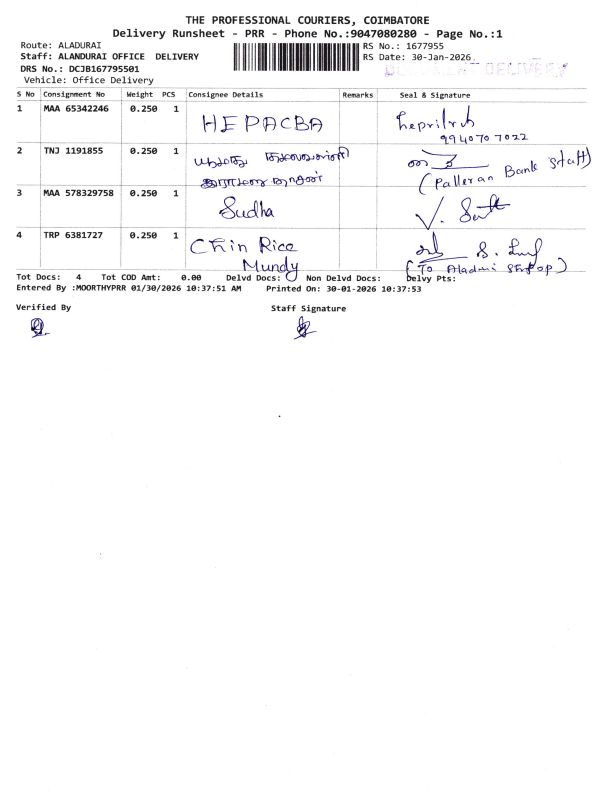 THE PROFESSIONAL COURIERS, COIMBATORE
Delivery Runsheet - PRR - Phone No.:9047080280 - Page No.:1
Route: ALADURAI RS No.: 1677955
Staff: ALANDURAI OFFICE DELIVERY RS Date: 30-Jan-2026
DRS No.: DCJB167795501 DELIVERY
Vehicle: Office Delivery
S No Consignment No Weight PCS Consignee Details Remarks Seal & Signature
1 MAA 65342246 0.250 1 HEPACBA
994070 7022
2 TNJ 1191855 0.250 1
(Palleran Bank Staff)
3 MAA 578329758 0.250 1 Sudha
4 TRP 6381727 0.250 1 Chin Rice
Mundy
Tot Docs: 4 Tot COD Amt: 0.00 Delvd Docs: Non Delvd Docs: Delvy Pts:
Entered By :MOORTHYPRR 01/30/2026 10:37:51 AM Printed On: 30-01-2026 10:37:53
Verified By Staff Signature